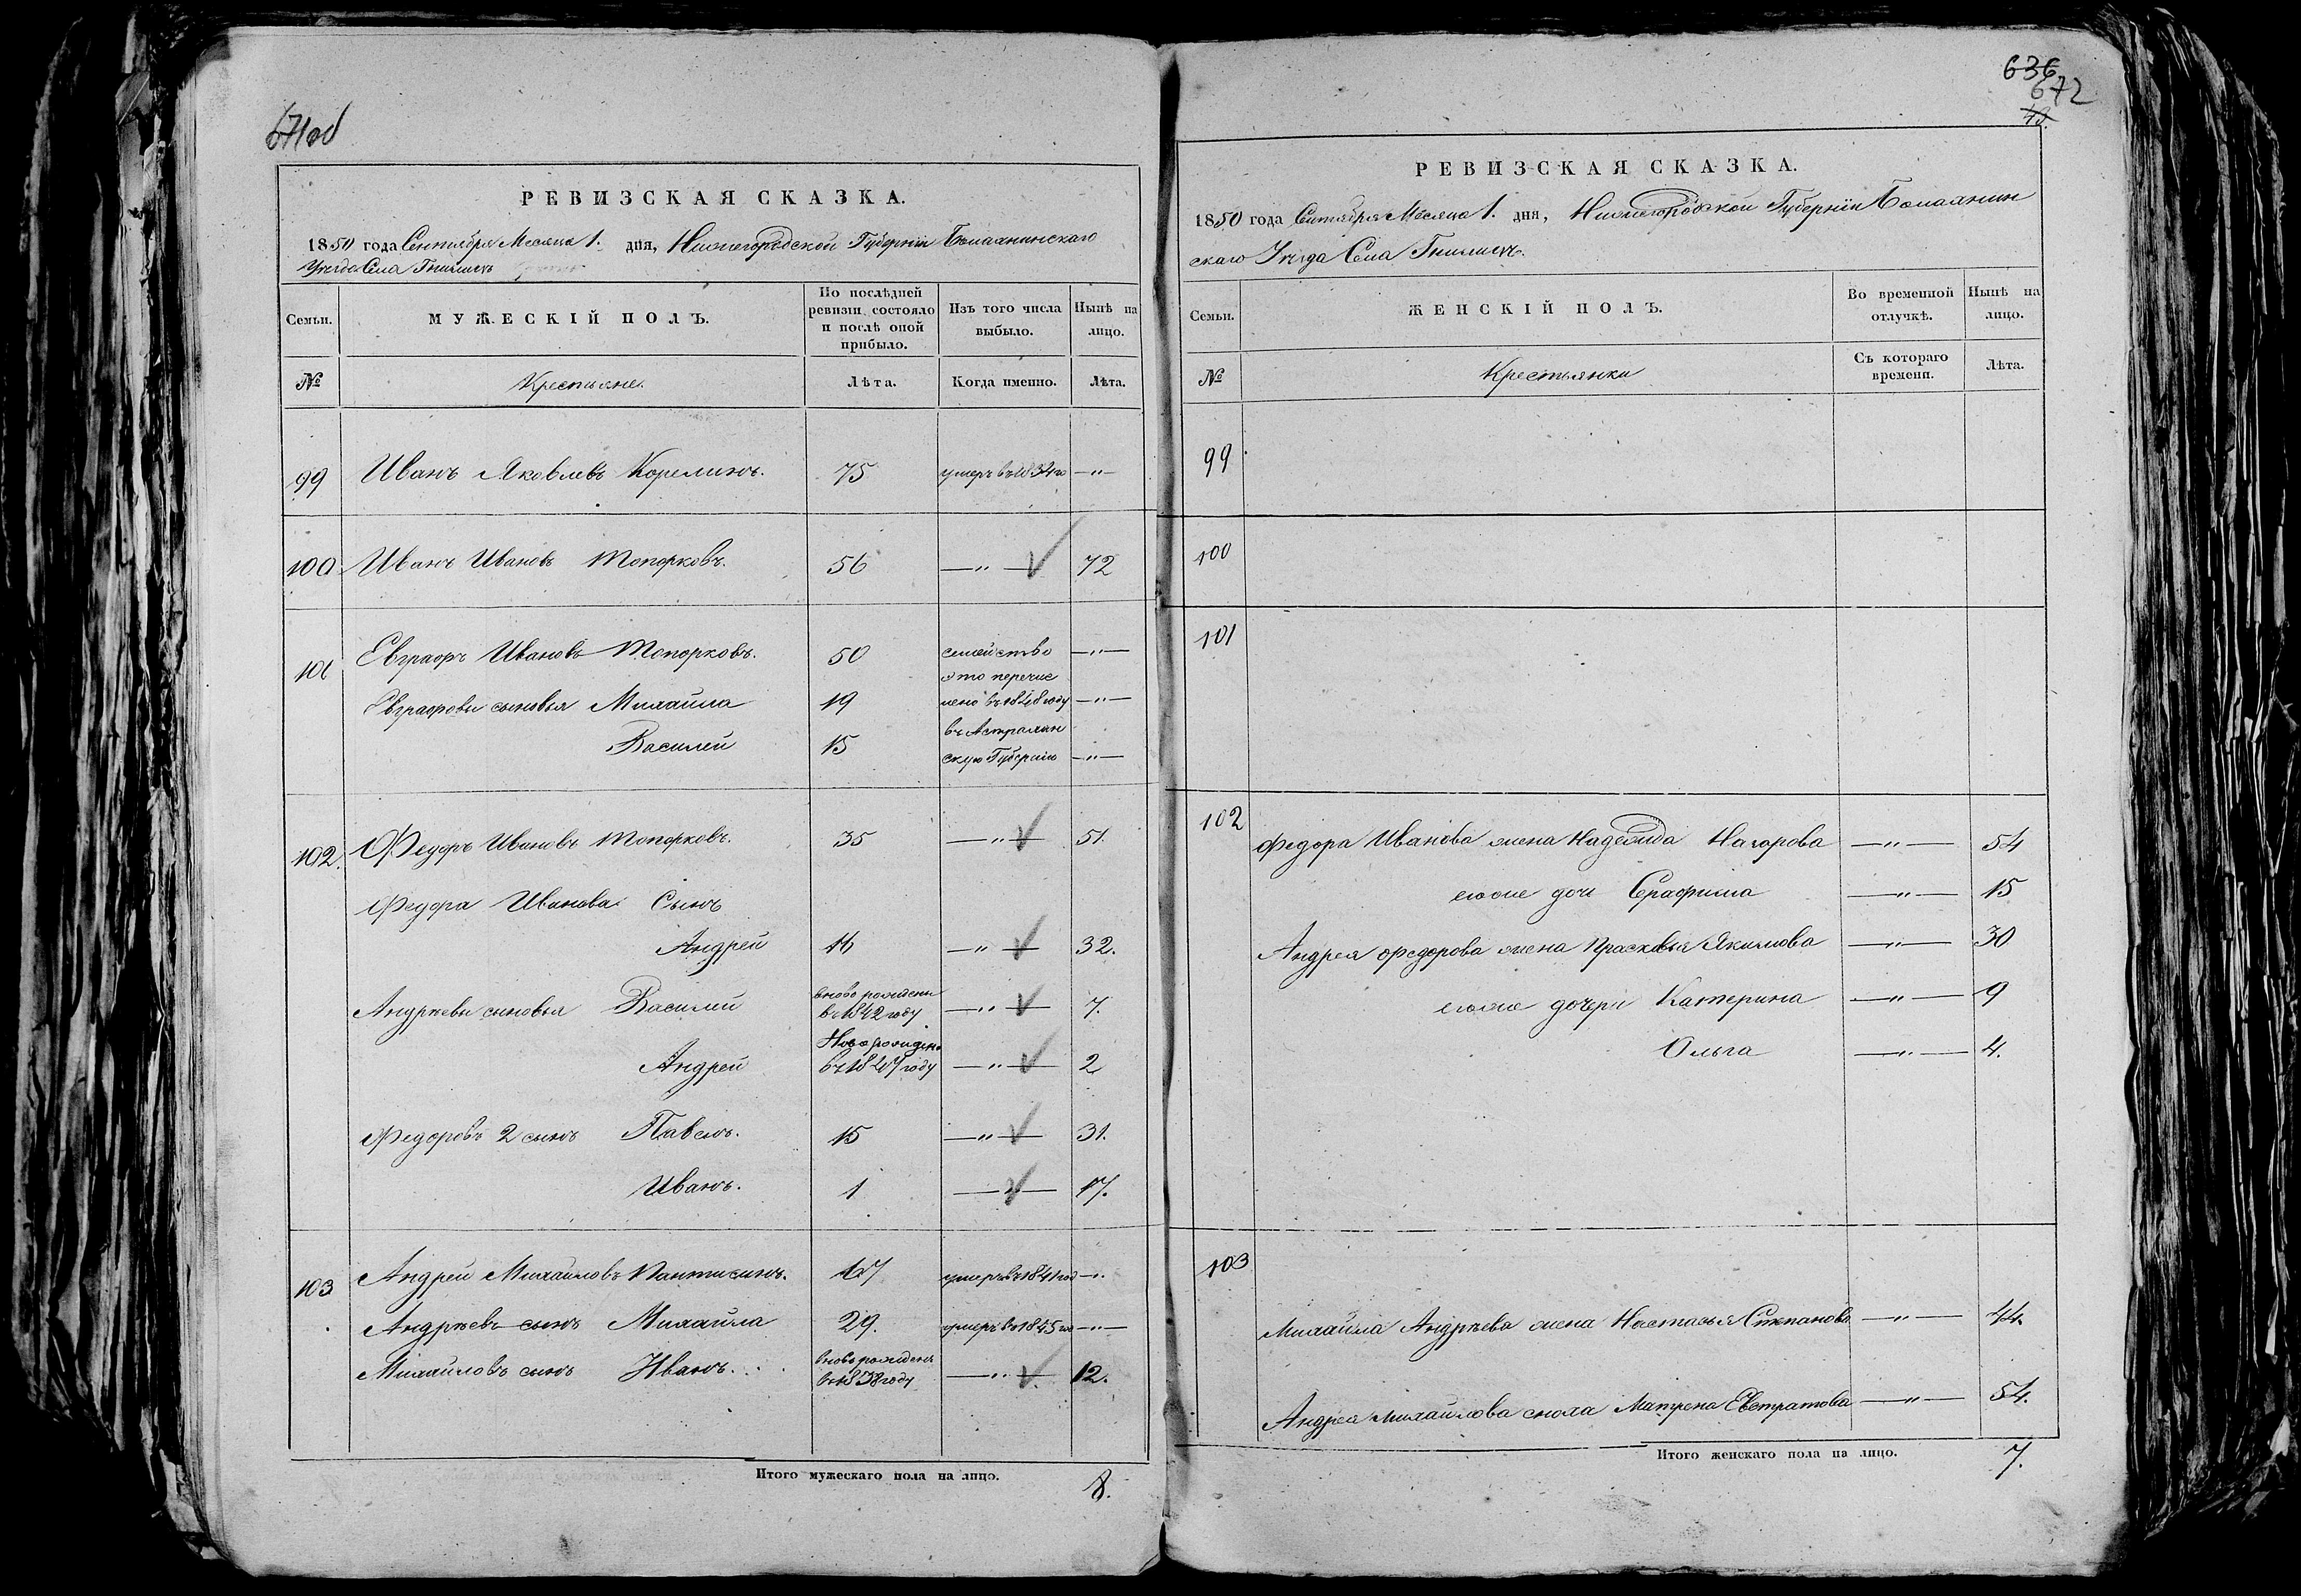 671об
РЕВИЗСКАЯ СКАЗКА.
1850 года Сентября Месяца 1. дня, Нижегородской Губернiи Балахнинскаго
Уезда Села
Семьи.
МУЖЕСКІЙ ПОЛЪ.
По послѣдней ревизіи состояло и послѣ оной прибыло.
Изъ того числа выбыло.
Нынѣ на лицо.
№
Крестьяне.
Лѣта.
Когда именно.
Лѣта.
99 Иванъ Яковлевъ Корелинъ. 75 умеръ въ 1834 го —〃—
100 Иванъ Ивановъ Топорковъ. 56 —〃— 72
101 Евграфъ Ивановъ Топорковъ. 50 семейство —〃—
это перечис
Евграфовы сыновья Михайла 19 лено въ 1848 году —〃—
въ Астрахан
Василей 15 скую Губернiю —〃—
102. Федоръ Ивановъ Топорковъ. 35 —〃— 51.
Федора Иванова Сынъ
Андрей 16 —〃— 32.
Андреевы сыновья Василей вновь рожденъ въ 1842 году —〃— 7.
Андрей Новорожден. въ 1847 году —〃— 2
Федоровъ 2 сынъ Павелъ. 15 —〃— 31.
Иванъ. 1 —〃— 17.
103 Андрей Михайловъ 47 умеръ въ 1841 год —〃—
Андреевъ сынъ Михайла 29. умеръ въ 1845 го —〃—
Михайловъ сынъ Иванъ. вновь рожденъ въ 1838 году —〃— 12.
Итого мужескаго пола на лицо. 8.
636
672
РЕВИЗСКАЯ СКАЗКА.
1850 года Сентября Месяца 1. дня, Нижегородской Губернiи Балахнин
скаго Уезда Села
Семьи.
ЖЕНСКІЙ ПОЛЪ.
Во временной отлучкѣ.
Нынѣ на лицо.
№
Крестьянки
Съ котораго времени.
Лѣта.
99
100
101
102
Федора Иванова жена Надежда —〃— 54
еюже дочь Серафима —〃— 15
Андрея Федорова жена Прасковья Якимова —〃— 30
еюже дочери Катерина —〃— 9
Ольга —〃— 4.
103
Михайла Андреева жена Настасья Степанова —〃— 44.
Андрея Михайлова сноха Матрена Евстратова —〃— 54.
Итого женскаго пола на лицо. 7.